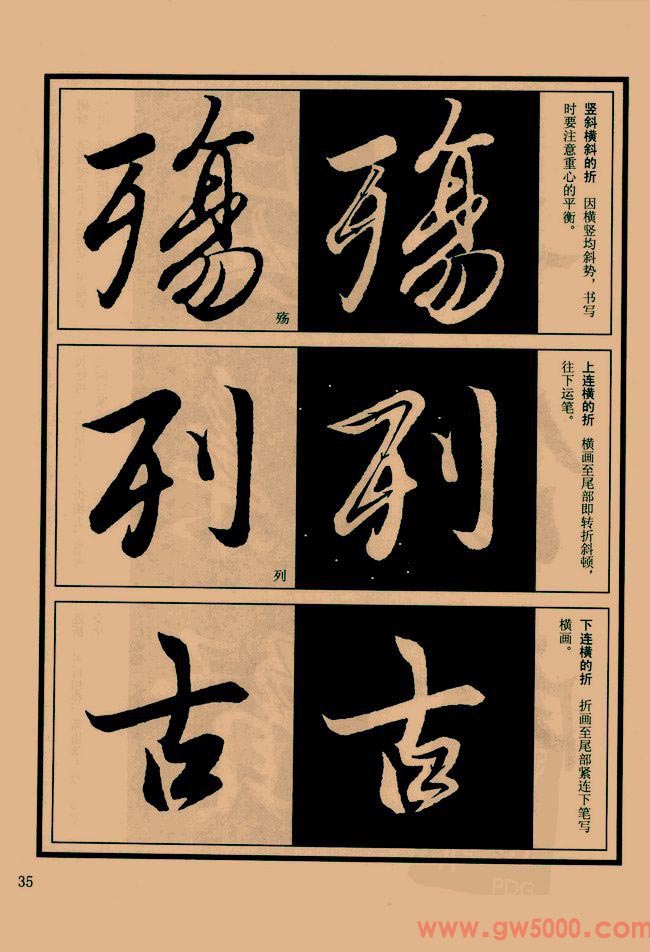 竖斜横斜的折 因横竖均斜势，书写
时要注意重心的平衡。
殇
殇
殇
上连横的折 横画至尾部即转折斜顿，
往下运笔。
列
列
列
下连横的折 折画至尾部紧连下笔写
横画。
古
古
35
PDG
www.gw5000.com